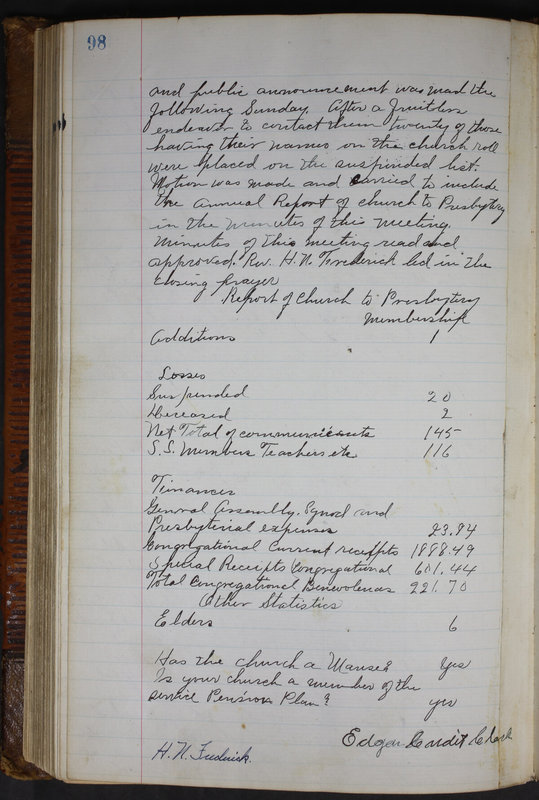 98
and public announcement was mad the
following Sunday After a fruitless
endever to contact them twenty of those
having their names on the church roll
were placed on the suspinded list.
Motion was made and carried to include
the annual Report of church to Presbytery
in the minutes of this meeting.
Minutes of this meeting read and
approved. Rev. H. N. Frederick led in the
closing prayer
Report of church to Presbytery
Membership
Additions 1
Losses
Suspended 20
Deceased 2
Net Total of communicants 145
S.S. Members Teachers etc 116
Finances
General Assembly. Synod and
Presbyterial expenses 23.94
Congregational Current receipts 1888.49
Special Receipts Congregational 601.44
Total Congregational Benevolences 221.70
Other Statistics
Elders 6
Has the church a Manse? Yes
Is your church a member of the
service Pension Plan? yes
Edgar Condit Clerk
H. N. Frederick.